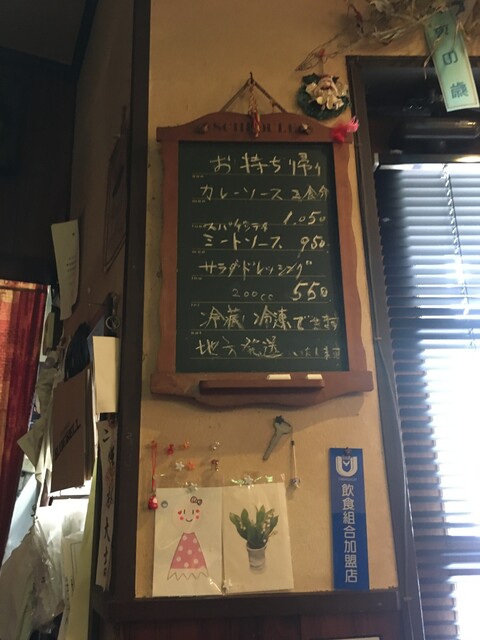 SCHEDULE
お持ち帰り
カレーソース 2食分
1.050
スパゲッティ
ミートソース 950
サラダドレッシング
200cc 550
冷蔵、冷凍で
地方発送 いたします
飲食組合加盟店